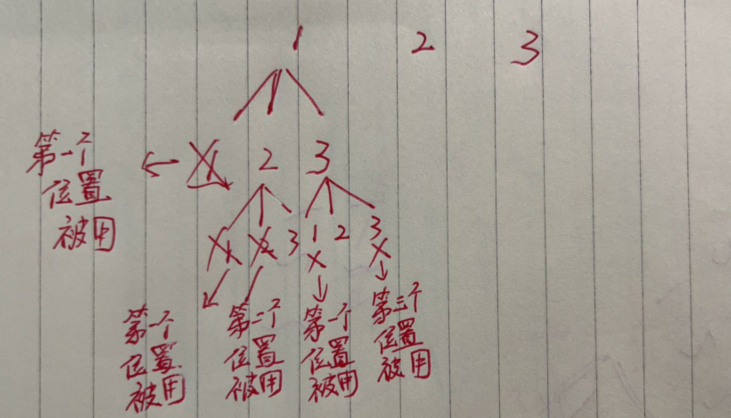 1 2 3
第一个
位置
被用
← 1 2 3
1 2 3 1 2 3
第一个
位置
被用
第二个
位置
被用
第一个
位置
被用
第三个
位置
被用